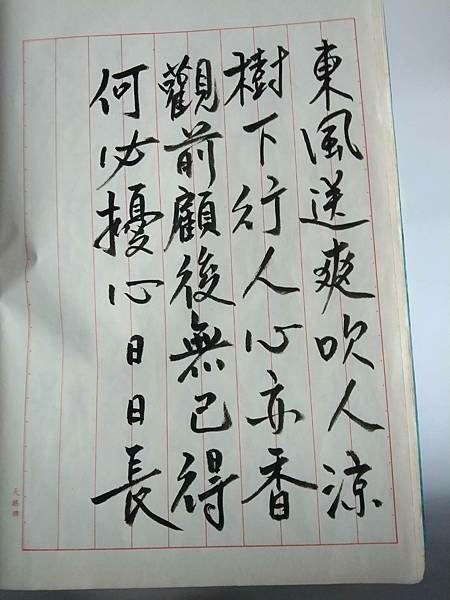 東風送爽吹人涼
樹下行人心亦香
觀前顧後無已得
何必擾心日日長